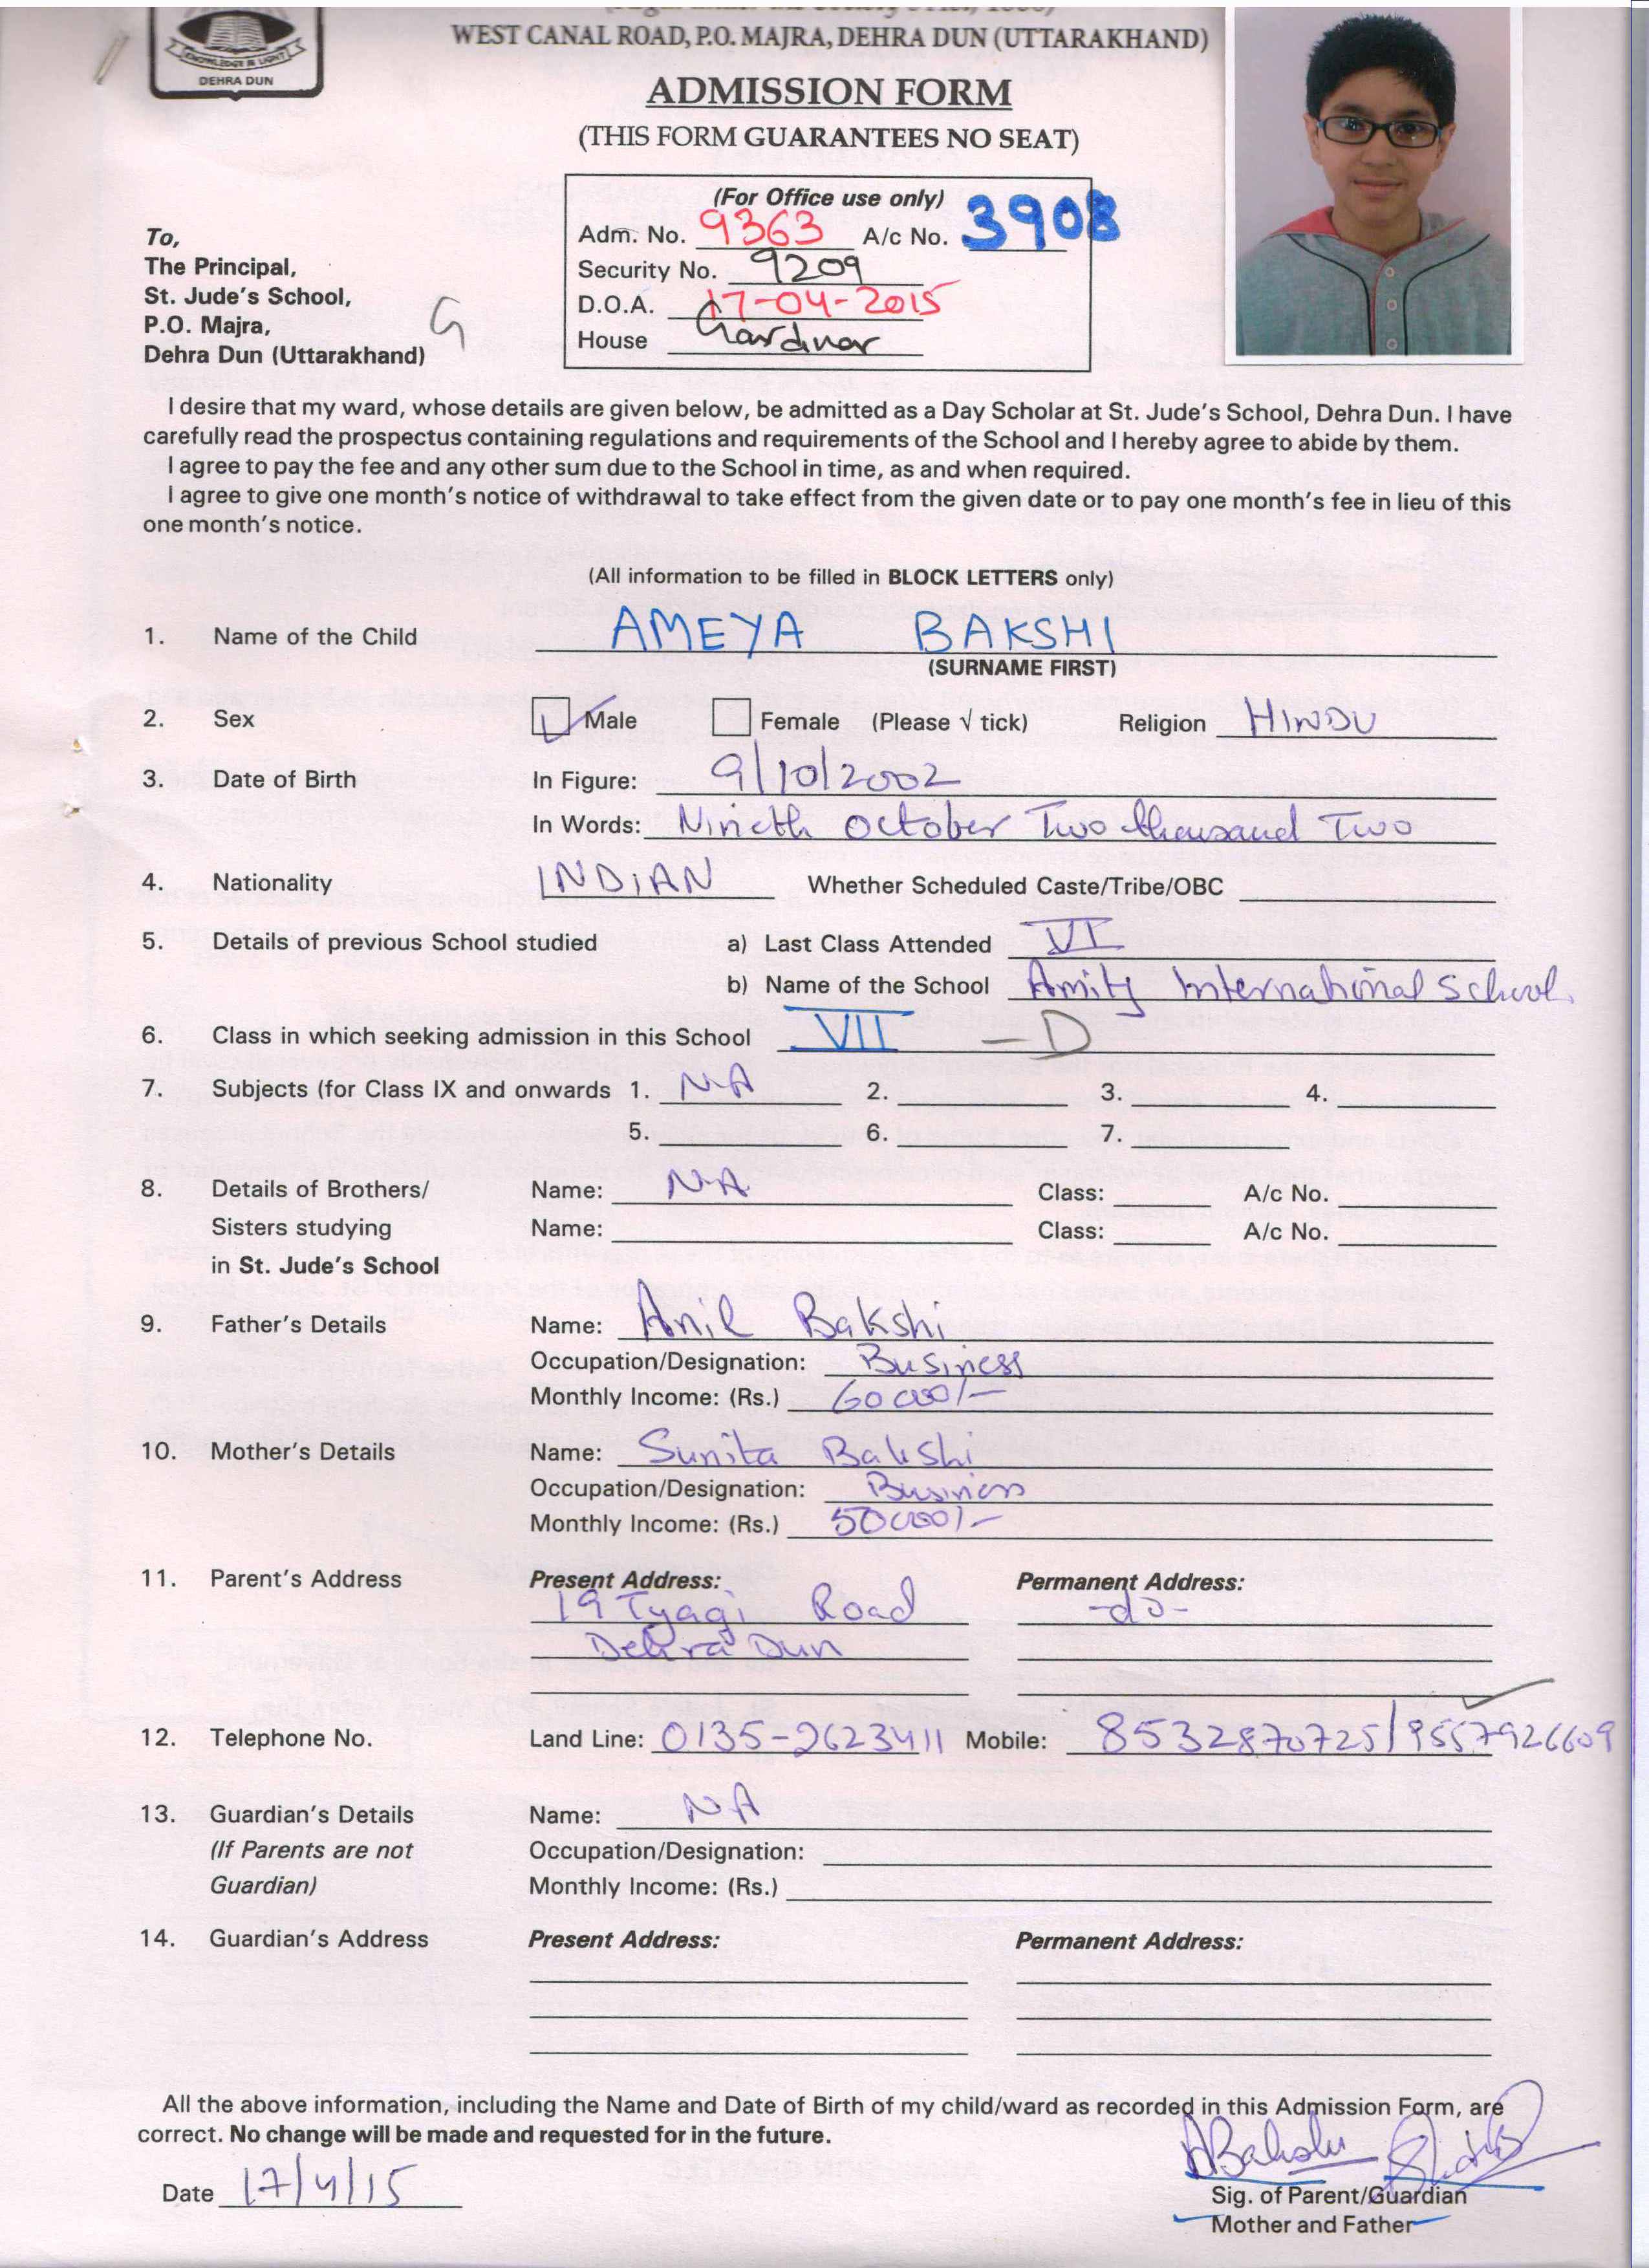 KNOWLEDGE IS LIGHT
DEHRA DUN
WEST CANAL ROAD, P.O. MAJRA, DEHRA DUN (UTTARAKHAND)
ADMISSION FORM
(THIS FORM GUARANTEES NO SEAT)
(For Office use only)
Adm. No. 9363 A/c No. 3908
Security No. 9209
D.O.A. 17-04-2015
House Gardner
To,
The Principal,
St. Jude's School,
P.O. Majra,
Dehra Dun (Uttarakhand)
G
I desire that my ward, whose details are given below, be admitted as a Day Scholar at St. Jude's School, Dehra Dun. I have
carefully read the prospectus containing regulations and requirements of the School and I hereby agree to abide by them.
I agree to pay the fee and any other sum due to the School in time, as and when required.
I agree to give one month's notice of withdrawal to take effect from the given date or to pay one month's fee in lieu of this
one month's notice.
(All information to be filled in BLOCK LETTERS only)
1. Name of the Child AMEYA BAKSHI
(SURNAME FIRST)
2. Sex Male Female (Please √ tick) Religion HINDU
3. Date of Birth In Figure: 9/10/2002
In Words: Nineth October Two thousand Two
4. Nationality INDIAN Whether Scheduled Caste/Tribe/OBC
5. Details of previous School studied a) Last Class Attended VI
b) Name of the School Amity International School.
6. Class in which seeking admission in this School VII - D
7. Subjects (for Class IX and onwards 1. N-A 2. 3. 4.
5. 6. 7.
8. Details of Brothers/ Name: N-A Class: A/c No.
Sisters studying Name: Class: A/c No.
in St. Jude's School
9. Father's Details Name: Anil Bakshi
Occupation/Designation: Business
Monthly Income: (Rs.) 60000/-
10. Mother's Details Name: Sunita Bakshi
Occupation/Designation: Business
Monthly Income: (Rs.) 50000/-
11. Parent's Address Present Address: Permanent Address:
19 Tyagi Road -do-
Dehra Dun
12. Telephone No. Land Line: 0135-2623411 Mobile: 8532870725/9557926609
13. Guardian's Details Name: NA
(If Parents are not Occupation/Designation:
Guardian) Monthly Income: (Rs.)
14. Guardian's Address Present Address: Permanent Address:
All the above information, including the Name and Date of Birth of my child/ward as recorded in this Admission Form, are
correct. No change will be made and requested for in the future.
ABakshi
Date 17/4/15
Sig. of Parent/Guardian
Mother and Father